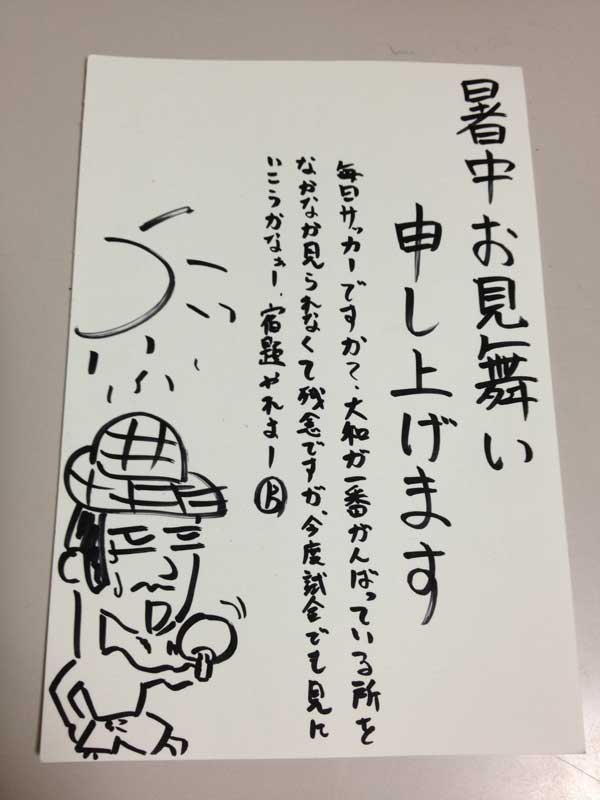 暑中お見舞い
申し上げます
毎日サッカーですか?、大和が一番がんばっている所を
なかなか見られなくて残念ですが、今度試合でも見に
いこうかなぁー、宿題やれよー